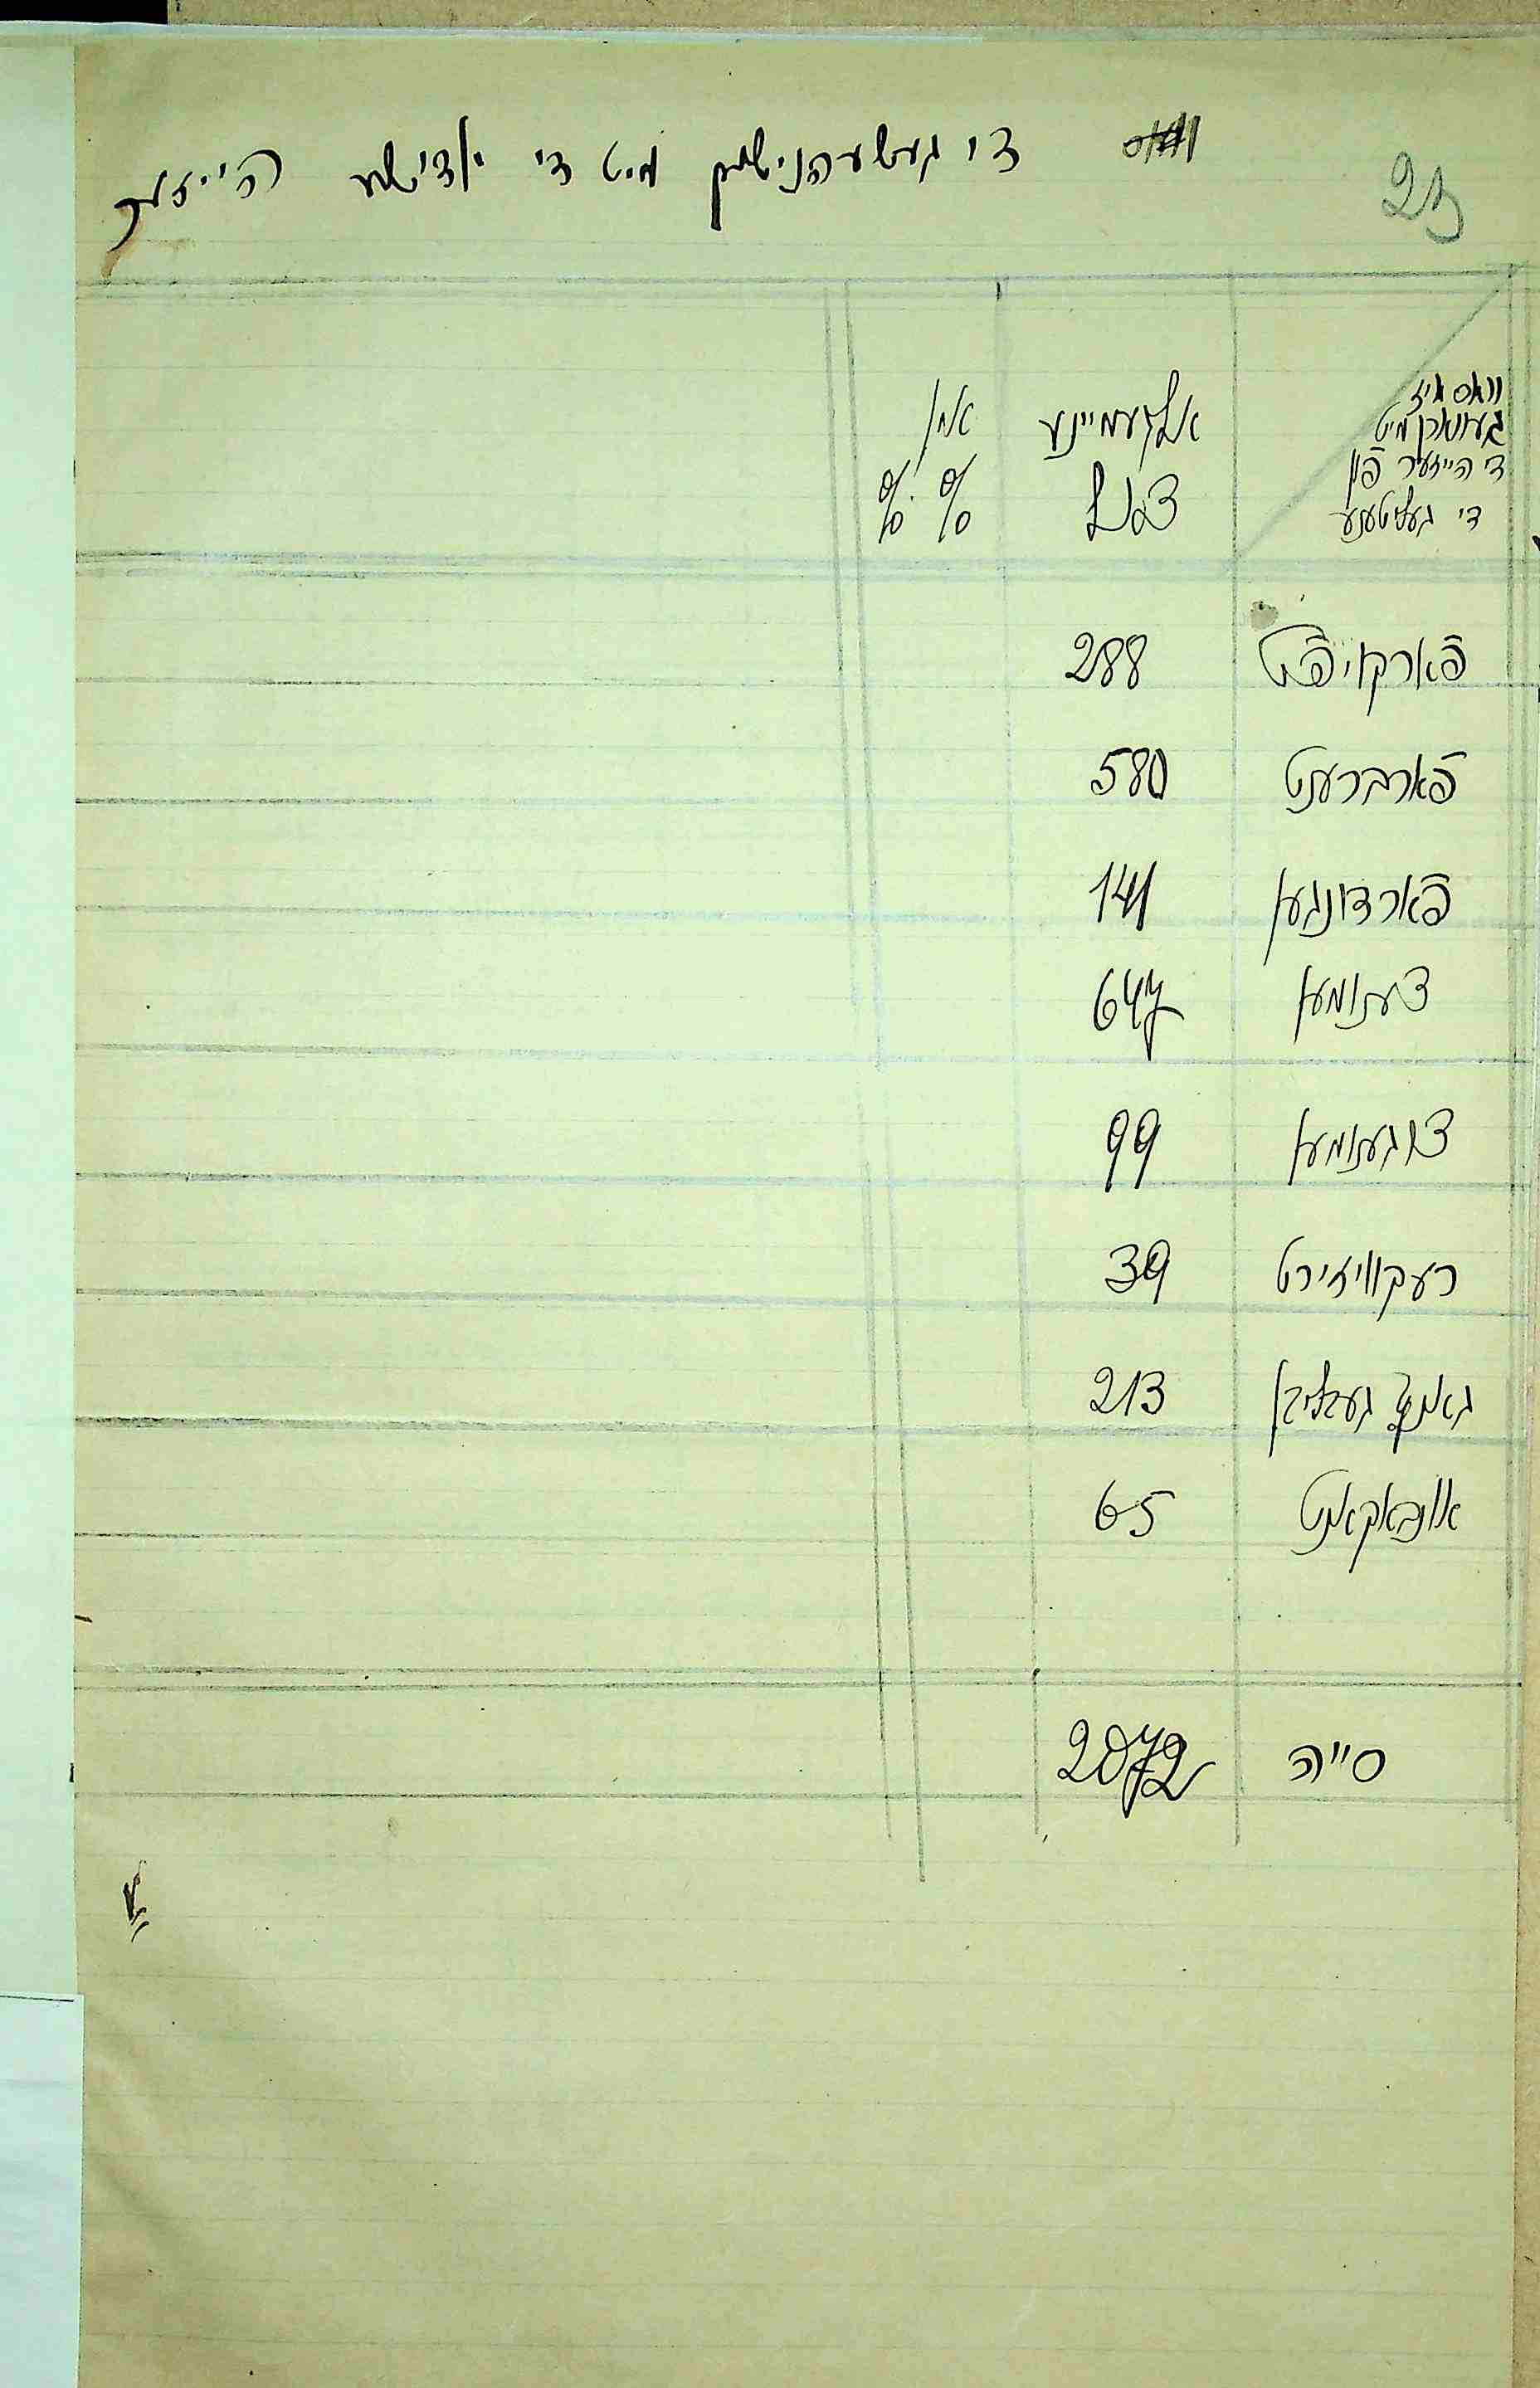 23
די געשעהניסען מיט די יודישע הייזער
וואס איז
געווארן מיט
די הייזער פון
די געליטענע
אלגעמיינע
צאל
אין
% %
פֿארקויפֿט 288
פֿארברענט 580
פֿארדונגען 141
צונומען 647
צוגענומען 99
רעקוויזירט 39
גאנץ געבליבן 213
אונבאקאנט 65
ס״ה 2072